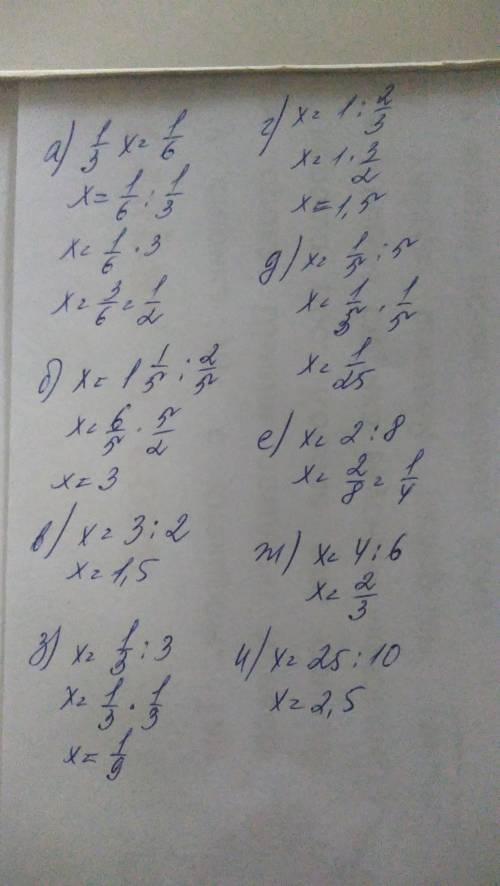 а) 1/3 x = 1/6
x = 1/6 : 1/3
x = 1/6 · 3
x = 3/6 = 1/2
б) x = 1 1/5 : 2/5
x = 6/5 · 5/2
x = 3
в) x = 3 : 2
x = 1,5
з) x = 1/3 : 3
x = 1/3 · 1/3
x = 1/9
г) x = 1 : 2/3
x = 1 · 3/2
x = 1,5
д) x = 1/5 : 5
x = 1/5 · 1/5
x = 1/25
е) x = 2 : 8
x = 2/8 = 1/4
ж) x = 4 : 6
x = 2/3
и) x = 25 : 10
x = 2,5